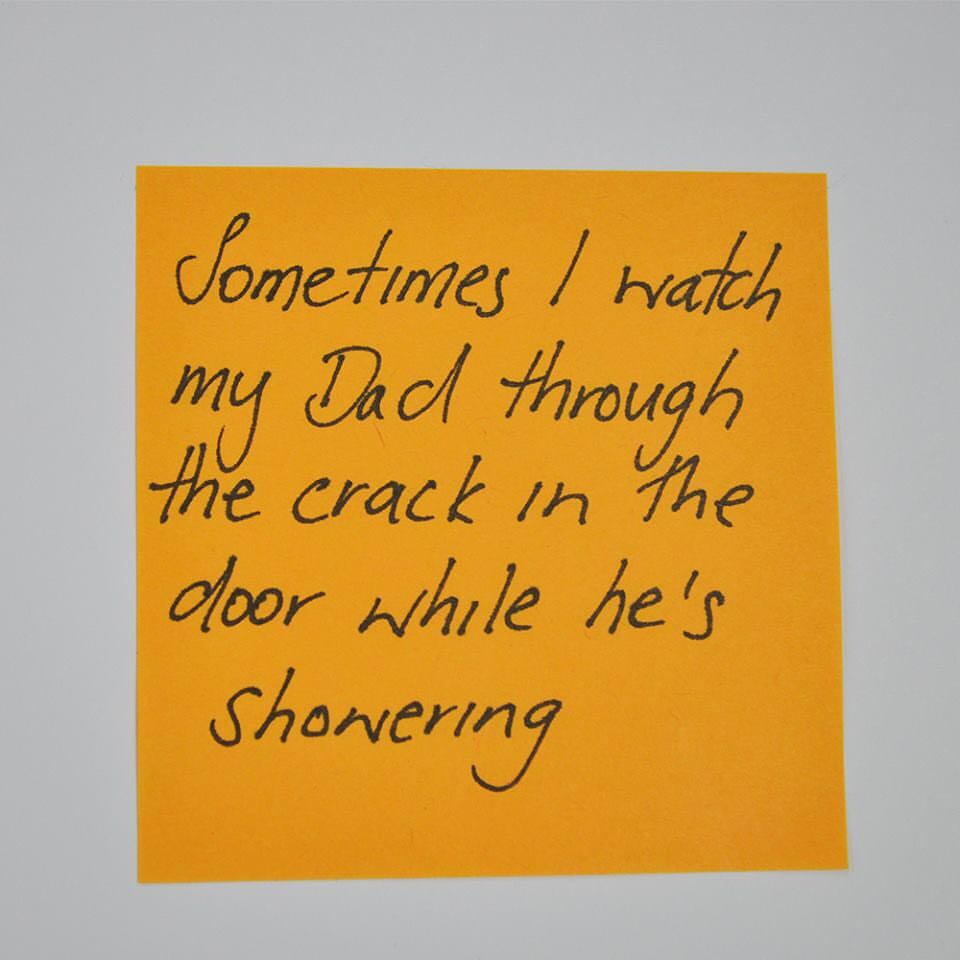 Sometimes I watch
my Dad through
the crack in the
door while he's
showering